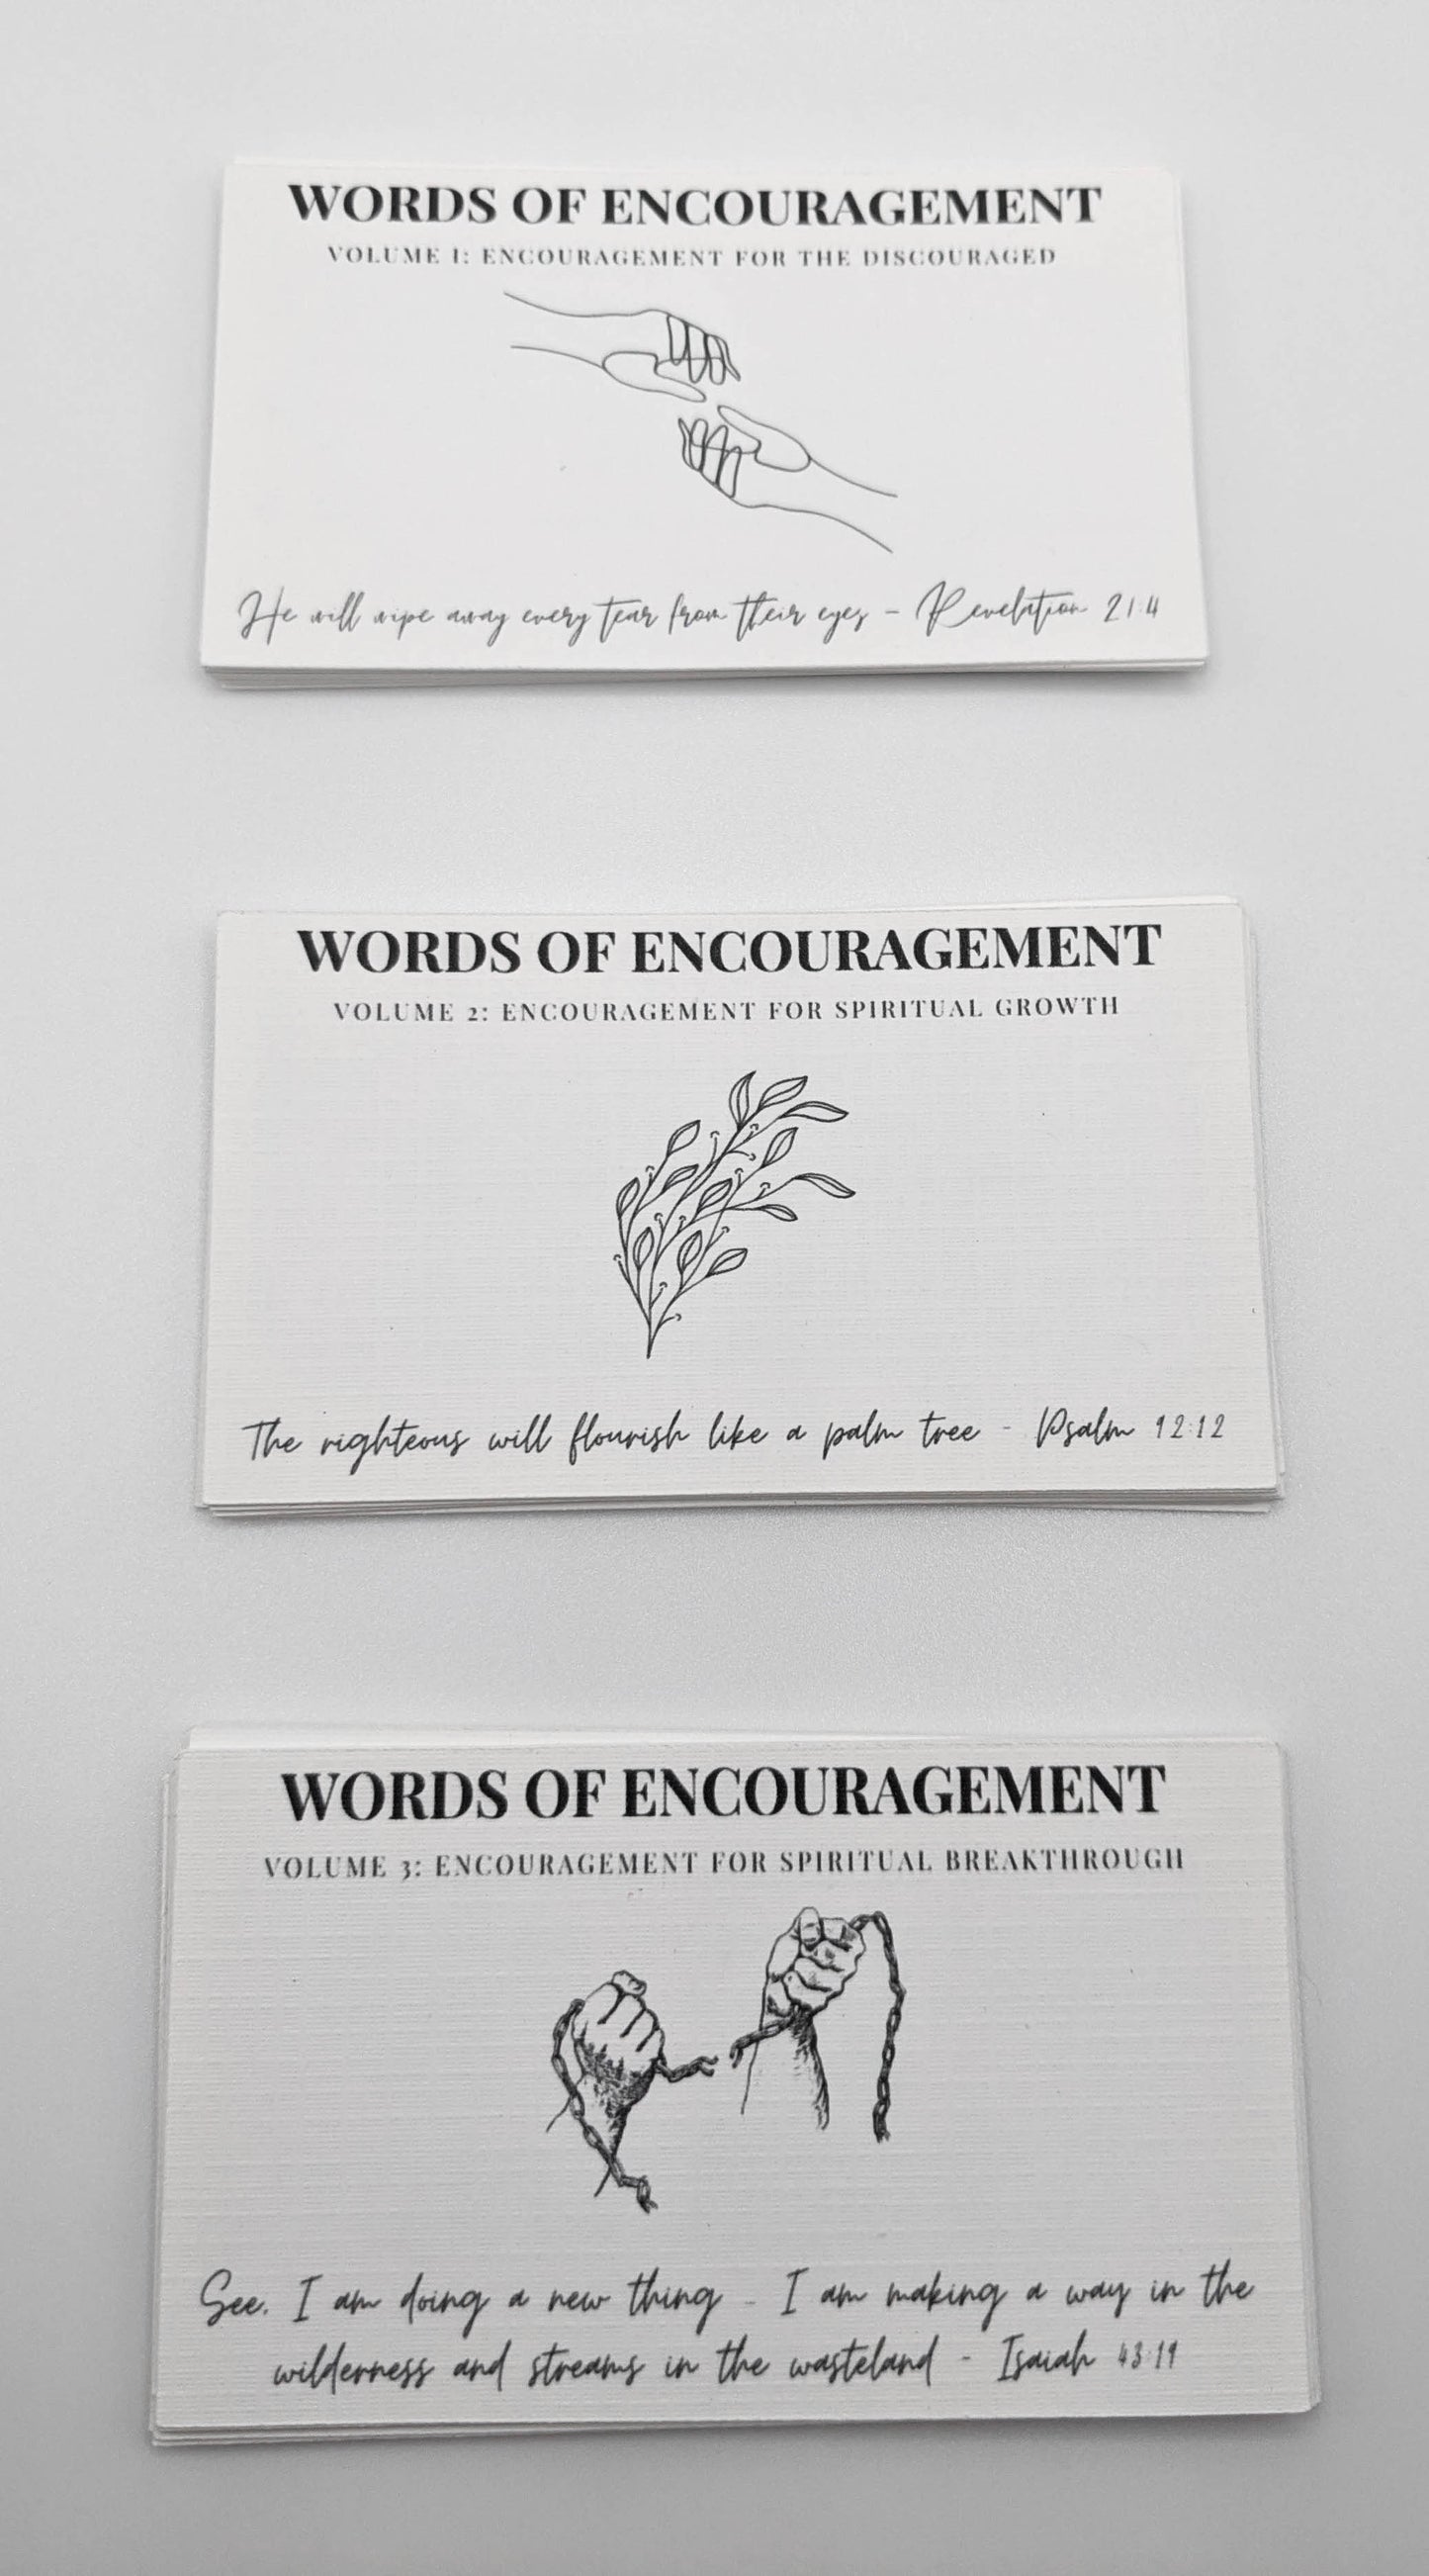 WORDS OF ENCOURAGEMENT
VOLUME 1: ENCOURAGEMENT FOR THE DISCOURAGED
He will wipe away every tear from their eyes - Revelation 21:4
WORDS OF ENCOURAGEMENT
VOLUME 2: ENCOURAGEMENT FOR SPIRITUAL GROWTH
The righteous will flourish like a palm tree - Psalm 92:12
WORDS OF ENCOURAGEMENT
VOLUME 3: ENCOURAGEMENT FOR SPIRITUAL BREAKTHROUGH
See, I am doing a new thing - I am making a way in the
wilderness and streams in the wasteland - Isaiah 43:19